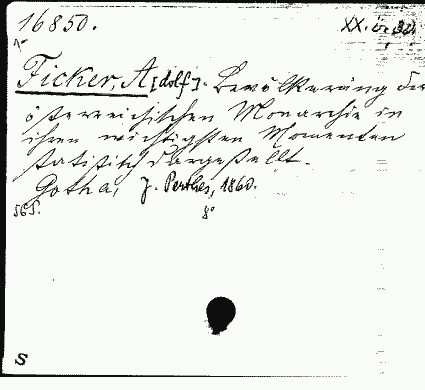 16850. XX.
Ficker, A[dolf]. Bevölkerung der
österreichischen Monarchie in
ihren wichtigsten Momenten
statistisch dargestellt.
Gotha, J. Perthes, 1860.
56S. 8°
S